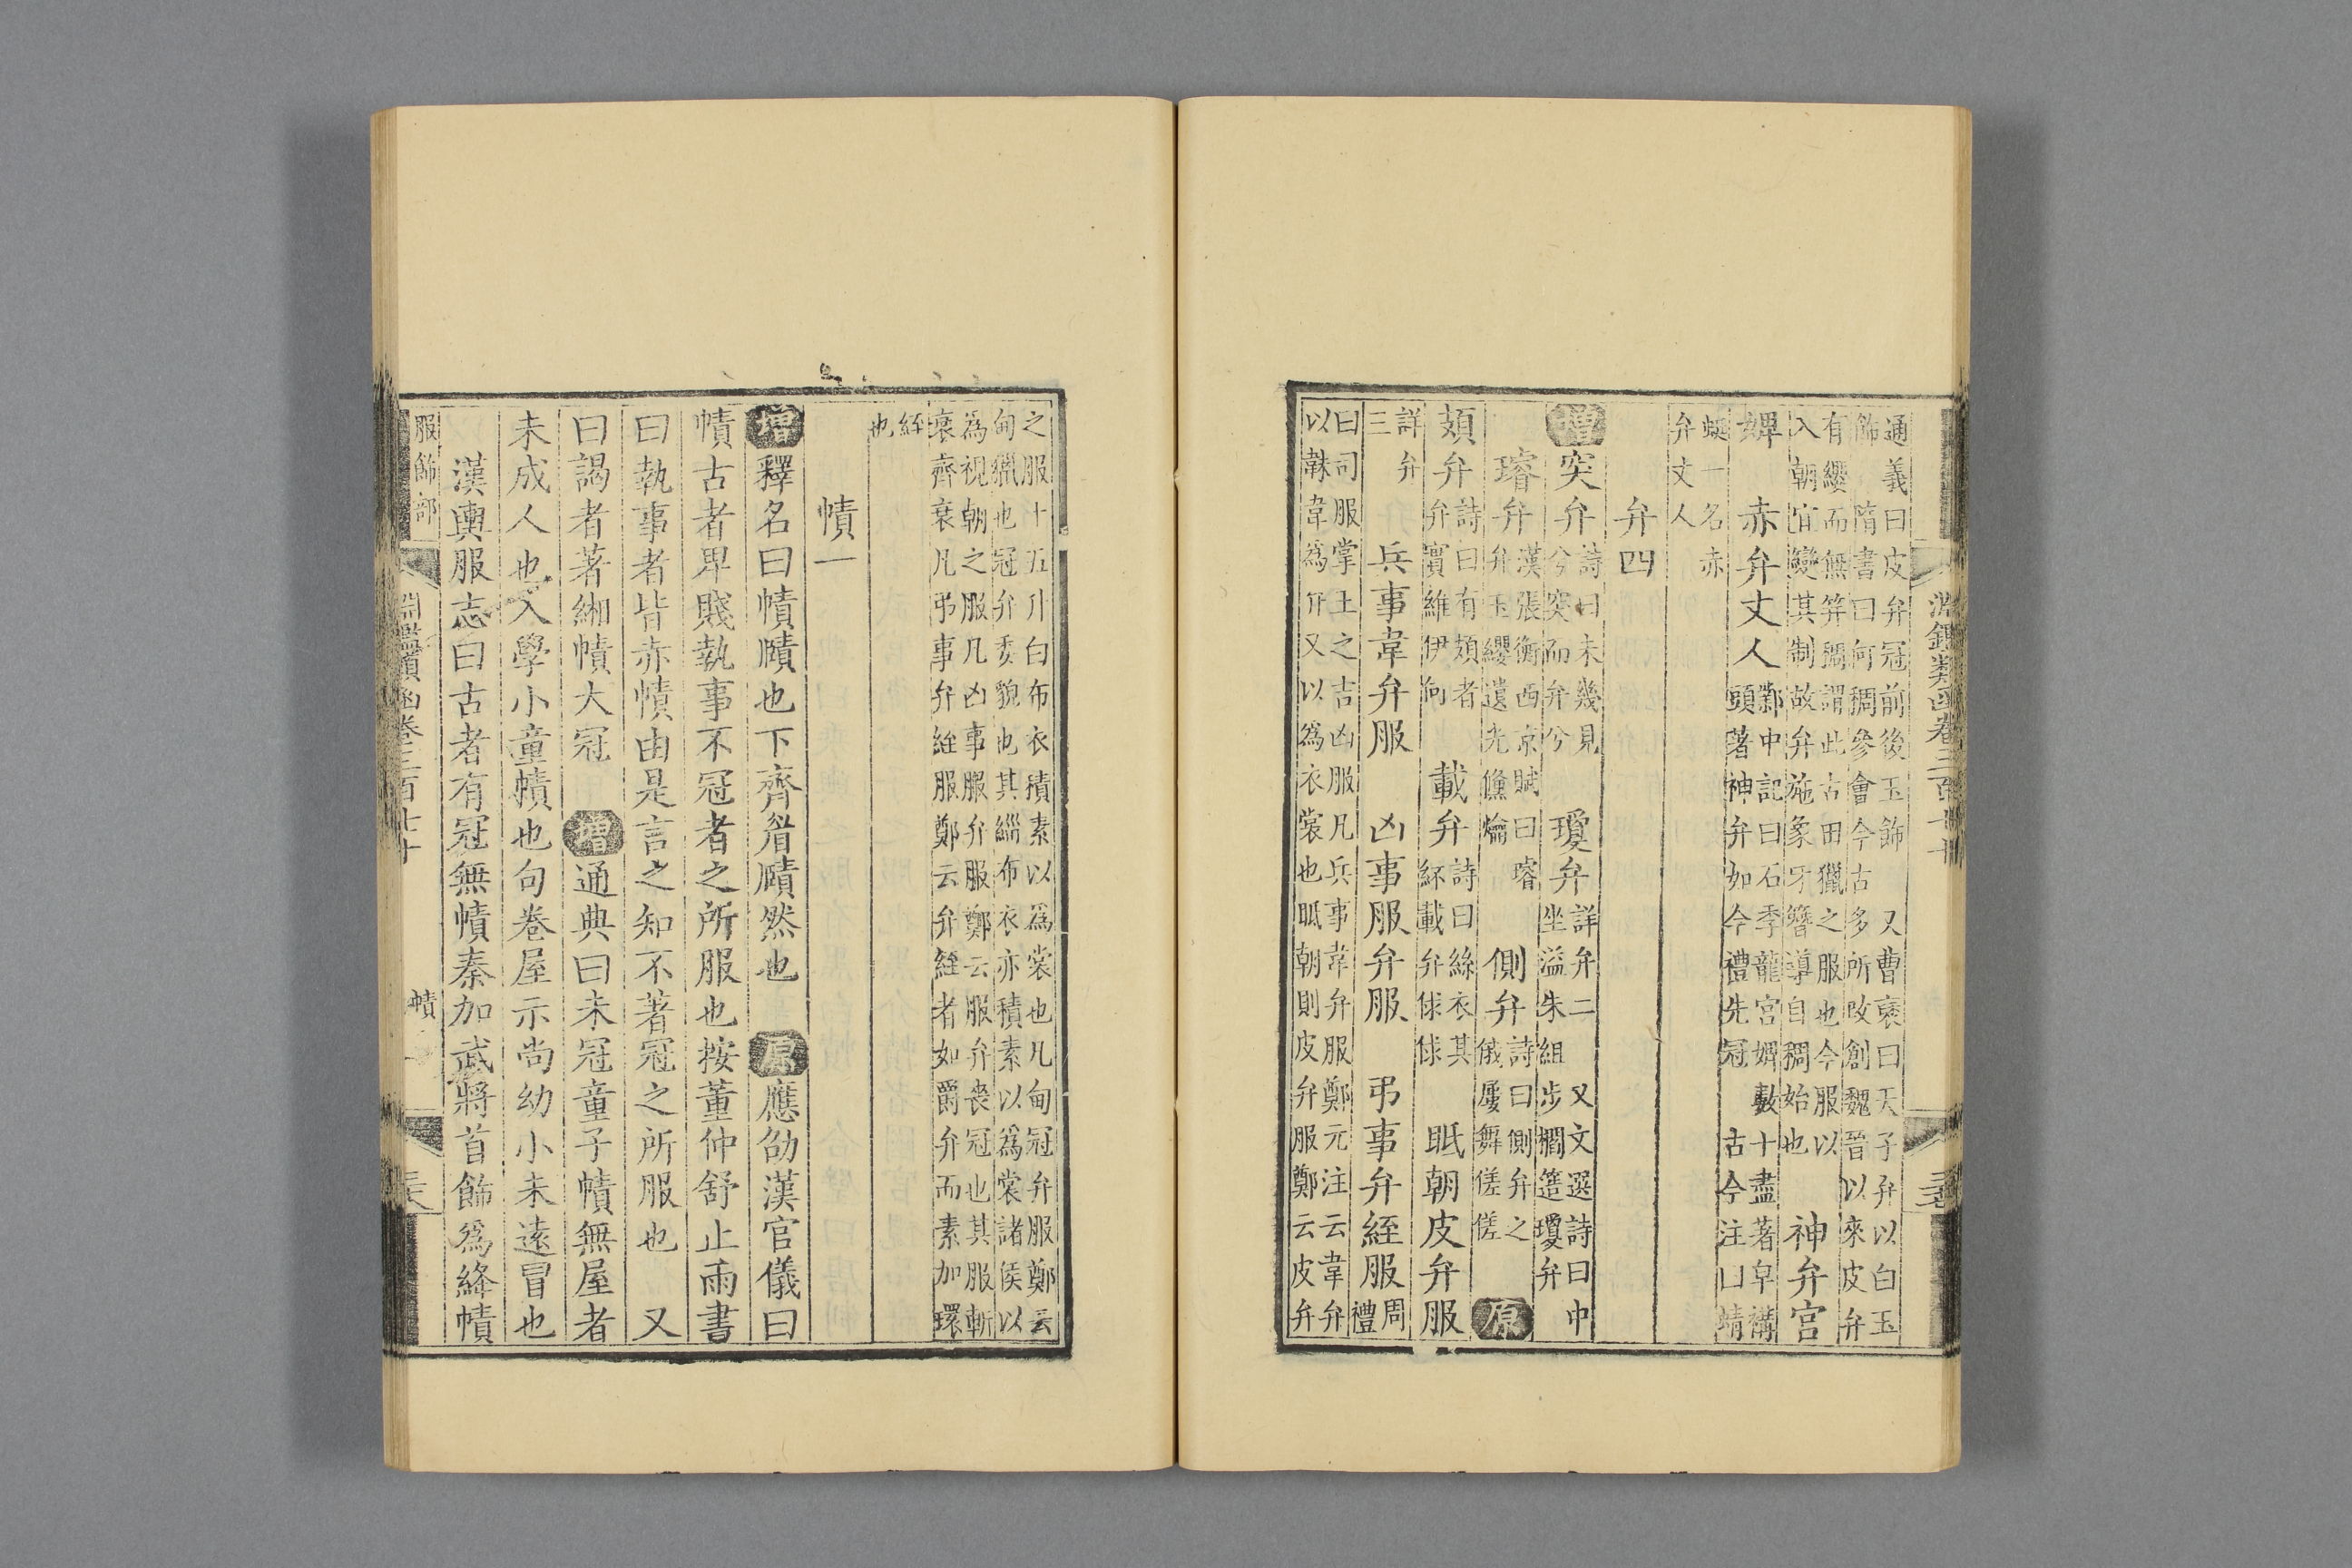 通義曰皮弁冠前後玉飾 又曹褒曰天子弁以白玉
飾 隋書曰何稠參會今古多所改創魏晉以來皮弁
有纓而無笄謂此古田獵之服也今服以
入朝宜變其制故弁施象牙簪導自稠始也 神弁宮
婢 赤弁丈人 鄴中記曰石季龍宮婢數十盡著皁褠頭著神弁如今禮先冠 古今注曰蜻
蜓一名赤弁丈人
弁四
增突弁 詩曰未幾見兮突而弁兮 瓊弁 詳弁二 又文選詩曰中坐溢朱組步櫩簉瓊弁
璿弁 漢張衡西京賦曰璿弁玉纓遺光儵爚 側弁 詩曰側弁之俄屢舞傞傞 原
頍弁 詩曰有頍者弁實維伊何 載弁 詩曰絲衣其紑載弁俅俅 眂朝皮弁服
詳弁三 兵事韋弁服 凶事服弁服 弔事弁絰服 周禮
曰司服掌王之吉凶服凡兵事韋弁服鄭元注云韋弁
以韎韋爲弁又以爲衣裳也眂朝則皮弁服鄭云皮弁
淵鑑類函卷三百七十
之服十五升白布衣積素以爲裳也凡甸冠弁服鄭云
甸獵也冠弁委貌也其緇布衣亦積素以爲裳諸侯以
爲視朝之服凡凶事服弁服鄭云服弁喪冠也其服斬
衰齊衰凡弔事弁絰服鄭云弁絰者如爵弁而素加環
絰也
幘一
增釋名曰幘賾也下齊眉賾然也 原應劭漢官儀曰
幘古者卑賤執事不冠者之所服也按董仲舒止雨書
曰執事者皆赤幘由是言之知不著冠之所服也 又
曰謁者著緗幘大冠 增通典曰未冠童子幘無屋者
未成人也入學小童幘也句卷屋示尚幼小未遠冒也
漢輿服志曰古者有冠無幘秦加武將首飾爲絳幘
服飾部 淵鑑類函卷三百七十 幘一